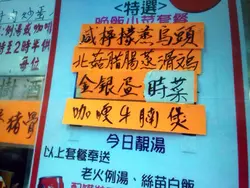 <特選>
晚飯小菜套餐
咸檸檬蒸烏頭
北菇腊腸蒸滑鷄
金銀蛋時菜
咖喱牛腩煲
今日靚湯
以上套餐奉送
老火例湯、絲苗白飯